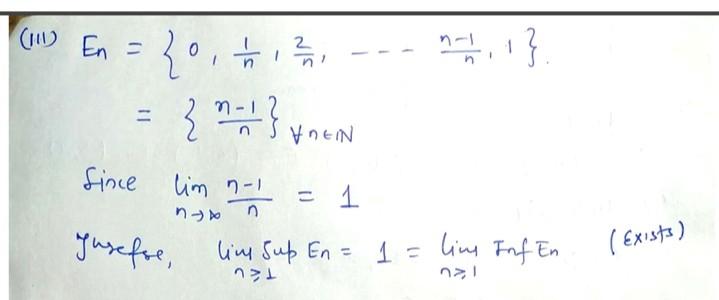 (III) En = { 0, 1/n, 2/n, --- n-1/n, 1 }.
= { n-1/n } ∀n∈IN
Since lim n→∞ n-1/n = 1
Therefore, lim Sup En n≥1 = 1 = lim Inf En n≥1 (Exists)